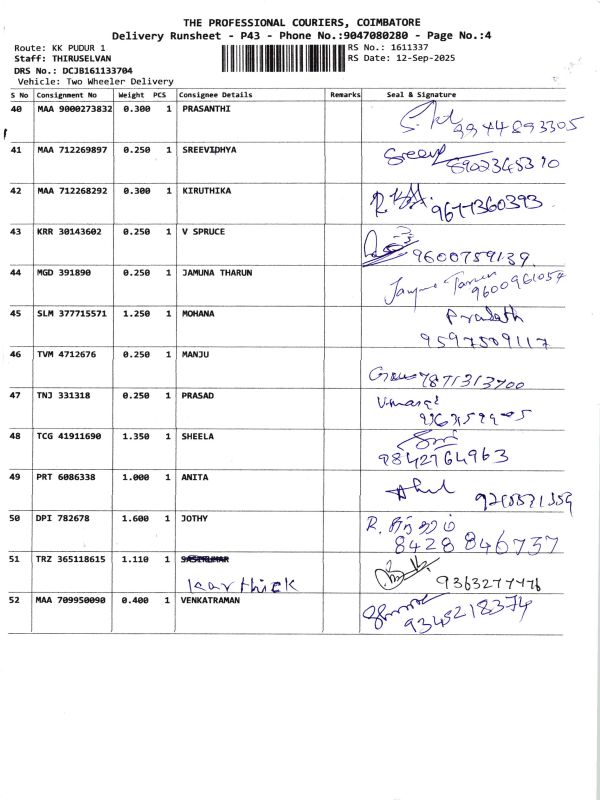 THE PROFESSIONAL COURIERS, COIMBATORE
Delivery Runsheet - P43 - Phone No.:9047080280 - Page No.:4
Route: KK PUDUR 1 RS No.: 1611337
Staff: THIRUSELVAN RS Date: 12-Sep-2025
DRS No.: DCJB161133704
Vehicle: Two Wheeler Delivery
S No Consignment No Weight PCS Consignee Details Remarks Seal & Signature
40 MAA 9000273832 0.300 1 PRASANTHI
9944893305
41 MAA 712269897 0.250 1 SREEVIDHYA
8902345390
42 MAA 712268292 0.300 1 KIRUTHIKA
9677360393
43 KRR 30143602 0.250 1 V SPRUCE
9600759139
44 MGD 391890 0.250 1 JAMUNA THARUN
9600961054
45 SLM 377715571 1.250 1 MOHANA
9597509117
46 TVM 4712676 0.250 1 MANJU
7871313700
47 TNJ 331318 0.250 1 PRASAD
48 TCG 41911690 1.350 1 SHEELA
9842764963
49 PRT 6086338 1.000 1 ANITA
50 DPI 782678 1.600 1 JOTHY
8428 846737
51 TRZ 365118615 1.110 1 SASIKUMAR
karthick 9363277476
52 MAA 709950090 0.400 1 VENKATRAMAN
9345218374